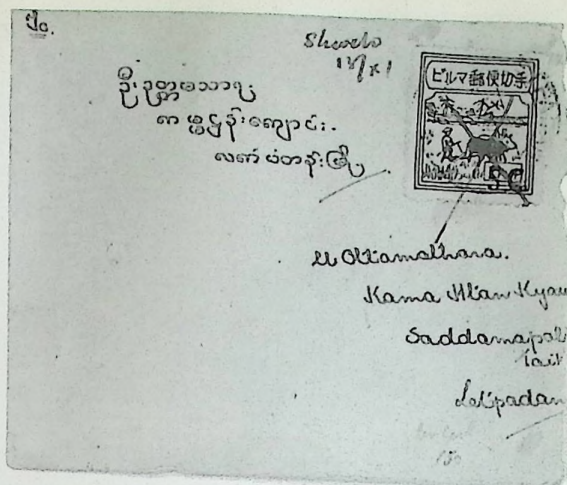 Shwebo
13/XI
ဦးဥတ္တမသာရ
ကမ္မဋ္ဌန်းကျောင်း.
လက်ပံတန်းမြို့
ビルマ郵便切手
5 C
U Ottamathara.
Kama Htan Kyau
Saddamapal
tait
Letpadan
150